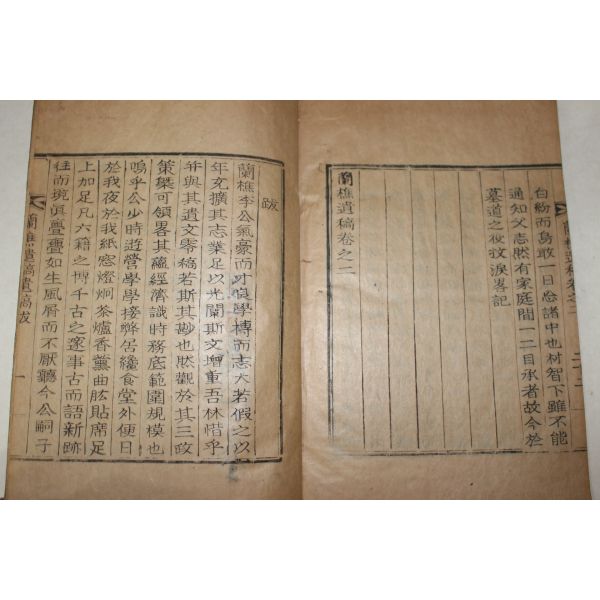 白紛而烏敢一日忘諸中也樹智下雖不能
通知父志然有家庭間一二目承者故今於
墓道之役抆淚畧記
蘭樵遺稿卷之二
跋
蘭樵李公氣豪而才良學博而志大若假之以
年充擴其志業足以光闡斯文增重吾林惜乎
年與其遺文零稿若斯其尠也然觀於其三政
策槩可領畧其蘊經濟識時務底範圍規模也
嗚乎公少時遊營學學接弊居纔食堂外便日
於我夜於我紙窓燈炯茶爐香薰曲肱貼席足
上加足凡六籍之博千古之邃事古而語新跡
往而境眞亹亹如生風屑而不厭聽今公嗣子
蘭樵遺稿跋
一